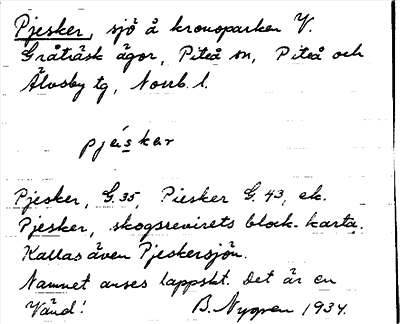 Pjesker, sjö å kronoparken V.
Gråträsk ägor, Piteå sn, Piteå och
Älvsby tg, Norrb. l.
pjéskar
Pjesker, G. 35, Piesker G. 43, ek.
Pjesker, skogsrevirets block-karta.
Kallas även Pjeskersjön.
Namnet anses lappskt. Det är en
Vänd! B. Nygren 1934.